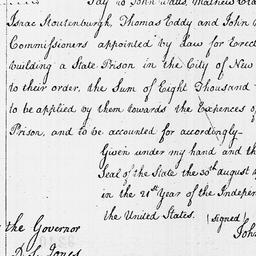 Pay to John Watts, Mathew
Isaac Stoutenburgh, Thomas Eddy and John
Commissioners appointed by Law for Erect
building a State Prison in the City of New
to their order, the Sum of Eight Thousand
to be applied by them towards the Expences of
Prison, and to be accounted for accordingly—
Given under my hand and th
Seal of the State the 30th august
in the 21st Year of the Indepen
the United States. (signed)
John
the Governor
D. S. Jones